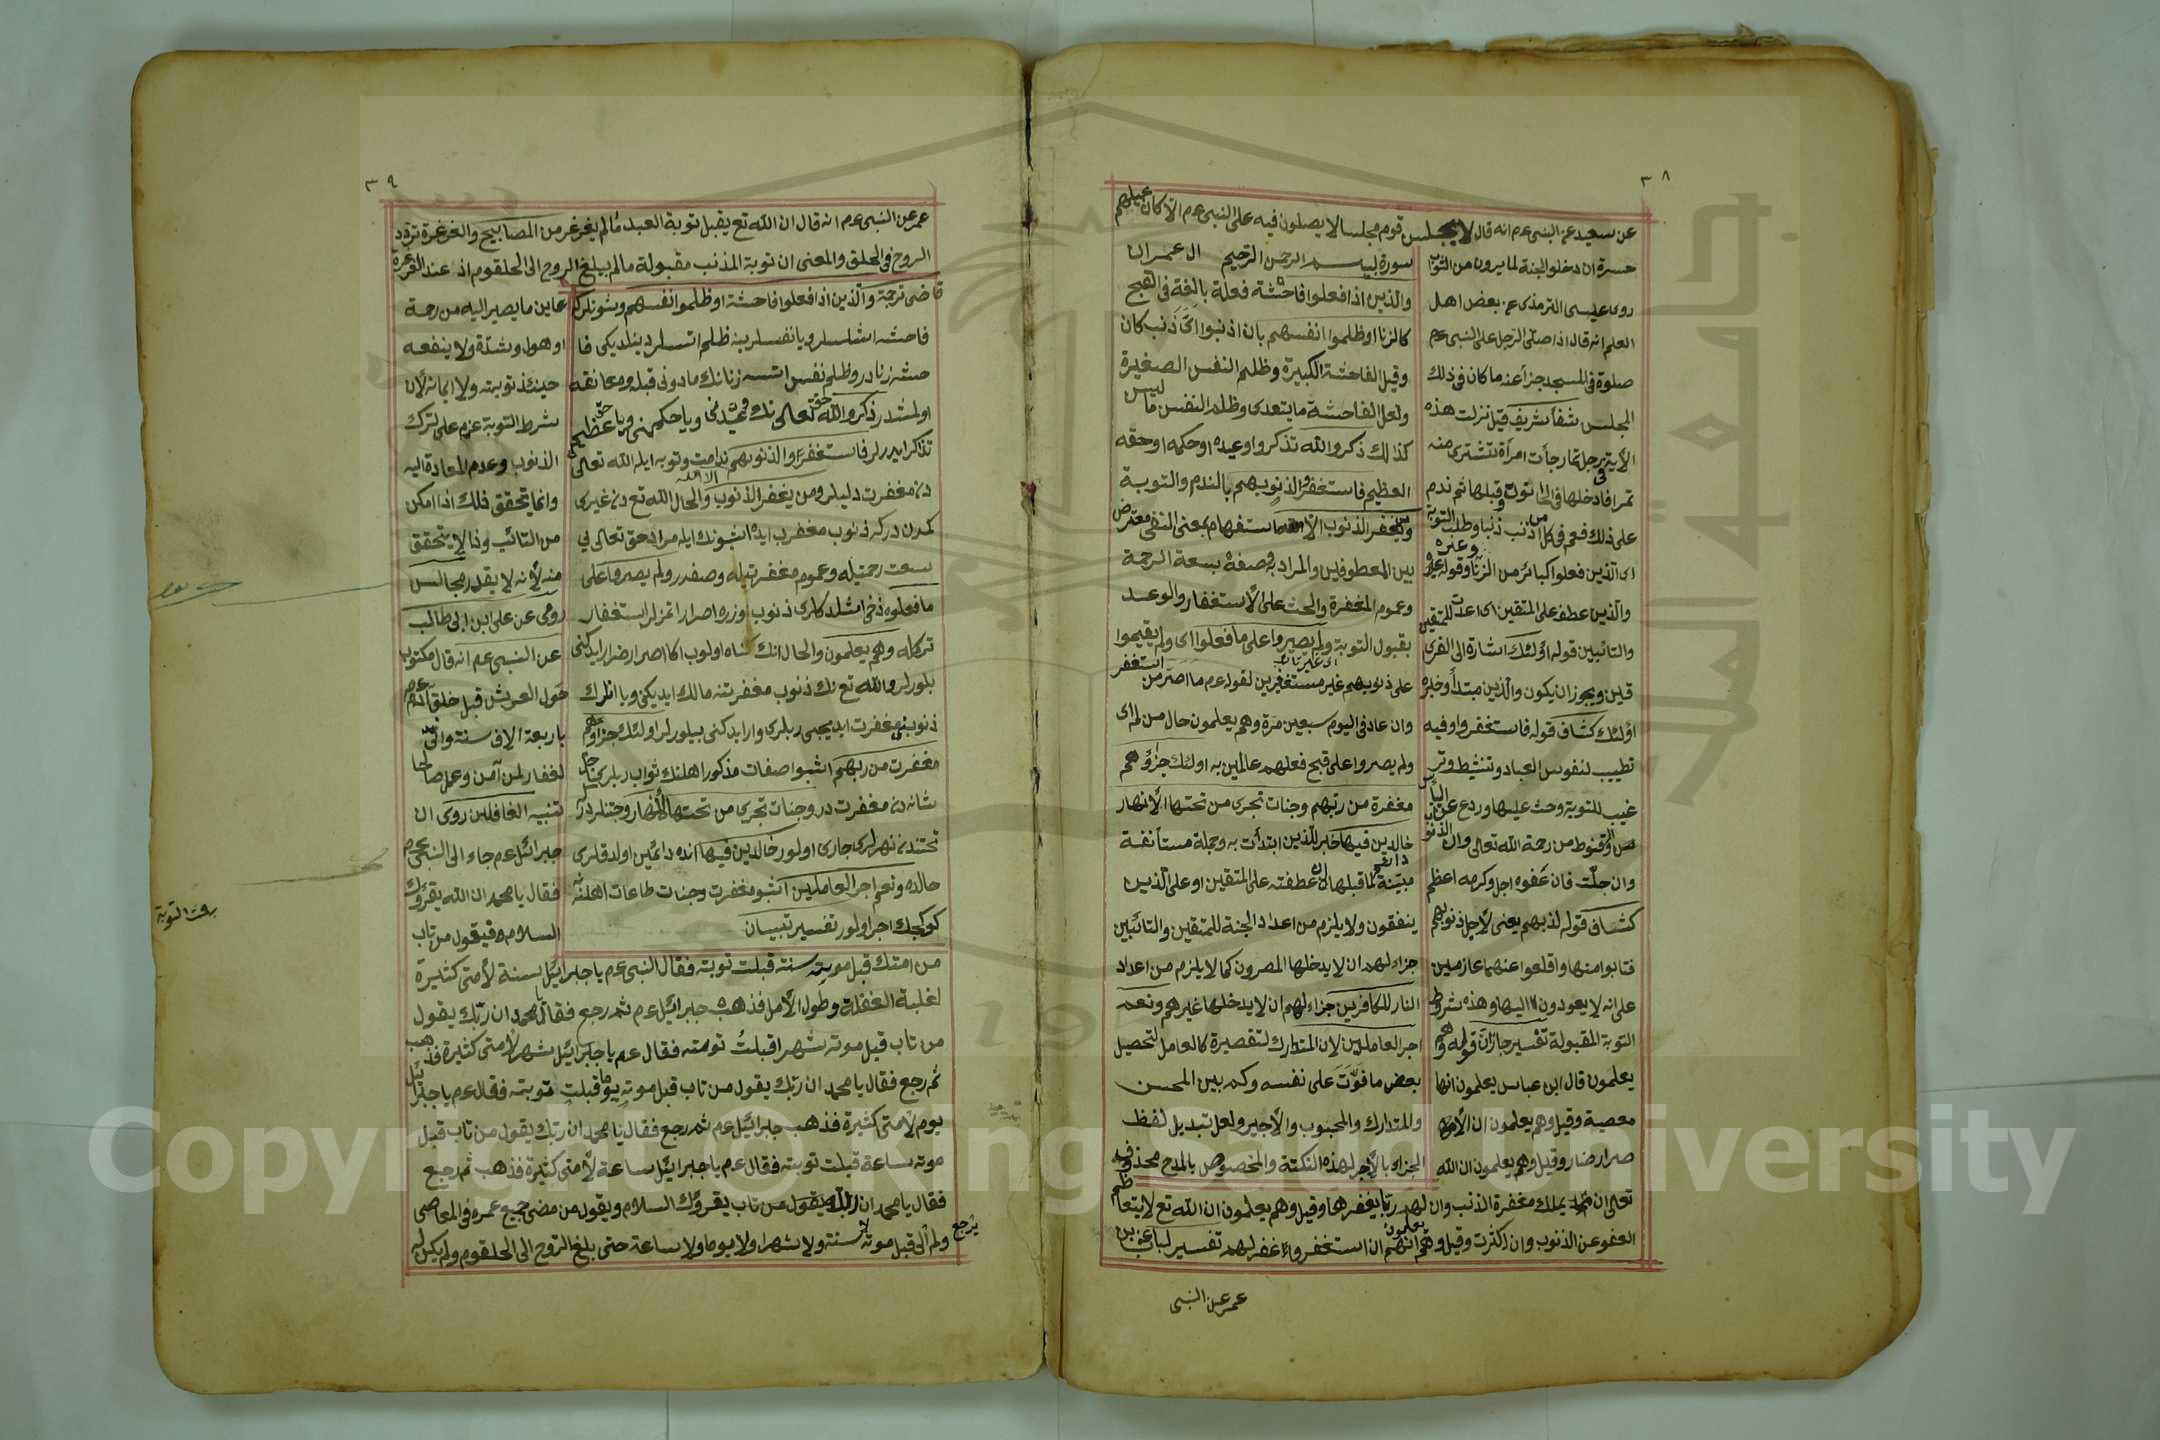 ٣٨
عن سعيد عن النبى عم انه قال لا يجلس قوم مجلسا لا يصلون فيه على النبى عم الا كان عليهم
حسرة ان دخلوا الجنة لما يرون من الثواب
روى عيسى الترمذى عن بعض اهل
العلم انه قال اذا صلى الرجل على النبى عم
صلوة فى المسجد جزأ عنه ما كان فى ذلك
المجلس شفاء شريف قيل نزلت هذه
الآية فى رجل تمار جاءت امرأة تشترى منه
تمرا فادخلها فى الحانوت وقبلها ثم ندم
على ذلك فعم فى كل من اذنب ذنبا وطلب التوبة
اى الذين فعلوا كبائر من الزنا وغيره قوله
والذين عطف على المتقين اى اعدت للمتقين
والتائبين قوله اولئك اشارة الى الفرى
قين ويجوز ان يكون والذين مبتدأ وخبره
اولئك كشاف قوله فاستغفروا وفيه
تطييب لنفوس العباد وتنشيط وتر
غيب للتوبة وحث عليها وردع عن اليأس
والقنوط من رحمة الله تعالى وان الذنوب
وان جلت فان عفوه اجل وكرمه اعظم
كشاف قوله لذنبهم يعنى لاجل ذنوبهم
فتابوا منها واقلعوا عنها عازمين
على انه لا يعودون اليها وهذه شروط
التوبة المقبولة تفسير خازن قوله وهم
يعلمون قال ابن عباس يعلمون انها
معصية وقيل وهم يعلمون ان الا
صرار ضار وقيل وهم يعلمون ان الله
سورة بسم الله الرحمن الرحيم ال عمران
والذين اذا فعلوا فاحشة فعلة بالغة فى القبح
كالزنا او ظلموا انفسهم بان اذنبوا اى ذنب كان
وقيل الفاحشة الكبيرة وظلم النفس الصغيرة
ولعل الفاحشة ما يتعدى وظلم النفس ما ليس
كذلك ذكروا الله تذكروا وعيده او حكمه او حقه
العظيم فاستغفروا لذنوبهم بالندم والتوبة
ومن يغفر الذنوب الا الله استفهام بمعنى النفى معترض
بين المعطوفين والمراد به وصفه بسعة الرحمة
وعموم المغفرة والحث على الاستغفار والوعد
بقبول التوبة ولم يصروا على ما فعلوا اى ولم يقيموا
على ذنوبهم غير مستغفرين لقوله عم ما اصر من استغفر
وان عاد فى اليوم سبعين مرة وهم يعلمون حال من لم اى
ولم يصروا على قبح فعلهم عالمين به اولئك جزاؤهم
مغفرة من ربهم وجنات تجرى من تحتها الانهار
خالدين فيها خبر للذين ابتدأت به وجملة مستأنفة
مبينة لما قبلها ان عطفته على المتقين او على الذين
ينفقون ولا يلزم من اعداد الجنة للمتقين والتائبين
جزاء لهم ان لا يدخلها المصرون كما لا يلزم من اعداد
النار للكافرين جزاء لهم ان لا يدخلها غيرهم ونعم
اجر العاملين لان المتدارك لتقصيره كالعامل لتحصيل
بعض ما فوت على نفسه وكم بين المحسن
والمتدارك والمحبوب والاجير ولعل تبديل لفظ
الجزاء بالاجر لهذه النكتة والمخصوص بالمدح محذوف
تعالى ان يملك مغفرة الذنب وان لهم ربا يغفرها وقيل وهم يعلمون ان الله تع لا يتعاظم
العفو عن الذنوب وان كثرت وقيل وهم يعلمون انهم ان استغفروا غفر لهم تفسير لباب عن ابن
عمر عن النبى
٣٩
عمر عن النبى عم انه قال ان الله تع يقبل توبة العبد ما لم يغرغر من المصابيح والغرغرة تردد
الروح فى الحلق والمعنى ان توبة المذنب مقبولة ما لم يبلغ الروح الى الحلقوم اذ عند الغرغرة
قاضى ترجمة والذين اذا فعلوا فاحشة او ظلموا انفسهم
فاحشه اشلسلر ويا نفسلرينه ظلم اتسلر دينلديكى فا
حشه زنادر وظلم نفس اتسه زنانك مادونى قبله ومعانقه
اولمشدر ذكروا الله حق تعالى نك وعيدنى ويا حكمنى ويا حق عظيم
تذكر ايدرلر فاستغفروا لذنوبهم ندامت وتوبه ايله الله تعالى
دن مغفرت ديلرلر ومن يغفر الذنوب الا الله والحال الله تع دن غيرى
كمدن دركه ذنوب مغفرت ايده اشبونك ايله مراد حق تعالى يى
سعت رحمتيله وعموم مغفرتيله وصفدر ولم يصروا على
ما فعلوا دخى اشلدكلرى ذنوب اوزره اصرار اتمزلر استغفار
تركله وهم يعلمون والحال انك كناه اولوب اكا اصرار ضرار ايدكنى
بلورلر والله تع نك ذنوب مغفرتنه مالك ايديكنى ويا انلرك
ذنوبنى مغفرت ايديجى ربلرى وار ايدكنى بيلورلر اولئك جزاؤهم
مغفرت من ربهم اشبو صفات مذكور اهلنك ثواب ربلرى
شانه دن مغفرت در وجنات تجرى من تحتها الانهار وجنتلردر
تحتندن نهرلرى جارى اولور خالدين فيها انده دائمين اولدقلرى
حالده ونعم اجر العاملين اشبو مغفرت وجنات طاعات اهلنه
كوكجك اجر اولور تفسير تبيان
عاين ما يصير اليه من رحمة
او هول وشدة ولا ينفعه
حينئذ توبته ولا ايمانه لان
شرط التوبة عزم على ترك
الذنوب وعدم المعادة اليه
وانما يتحقق ذلك اذا امكن
من التائب وذا لا يتحقق
منه لانه لا يقدر مجالس
روى عن على ابن ابى طالب
عن النبى عم انه قال مكتوب
حول العرش قبل خلق آدم
باربعة الاف سنة وانى
لغفار لمن آمن وعمل صالحا
تنبيه الغافلين روى ان
جبرائيل عم جاء الى النبى عم
فقال يا محمد ان الله يقرؤك
السلام فيقول من تاب
من امتك قبل موته سنة قبلت توبته فقال النبى عم يا جبرائيل سنة لامتى كثيرة
لغلبة الغفلة وطول الامل فذهب جبرائيل عم ثم رجع فقال يا محمد ان ربك يقول
من تاب قبل موته شهرا قبلت توبته فقال عم يا جبرائيل شهر لامتى كثيرة فذهب
ثم رجع فقال يا محمد ان ربك يقول من تاب قبل موته يوما قبلت توبته فقال عم يا جبرائيل
يوم لامتى كثيرة فذهب جبرائيل عم ثم رجع فقال يا محمد ان ربك يقول من تاب قبل
موته ساعة قبلت توبته فقال عم يا جبرائيل ساعة لامتى كثيرة فذهب ثم رجع
فقال يا محمد ان ربك يقول من تاب يقرؤك السلام ويقول من مضى جميع عمره فى المعاصى
ولم يرجع الى قبل موته سنة ولا شهرا ولا يوما ولا ساعة حتى بلغ الروح الى الحلقوم ولم يكن له
Copyright © King Saud University